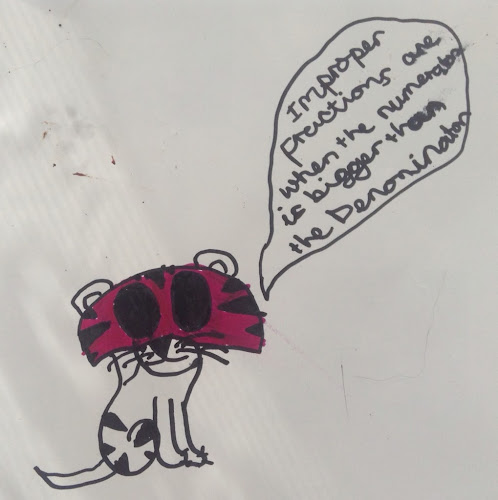 Improper
fractions are
when the numerator
is bigger than
the Denominator